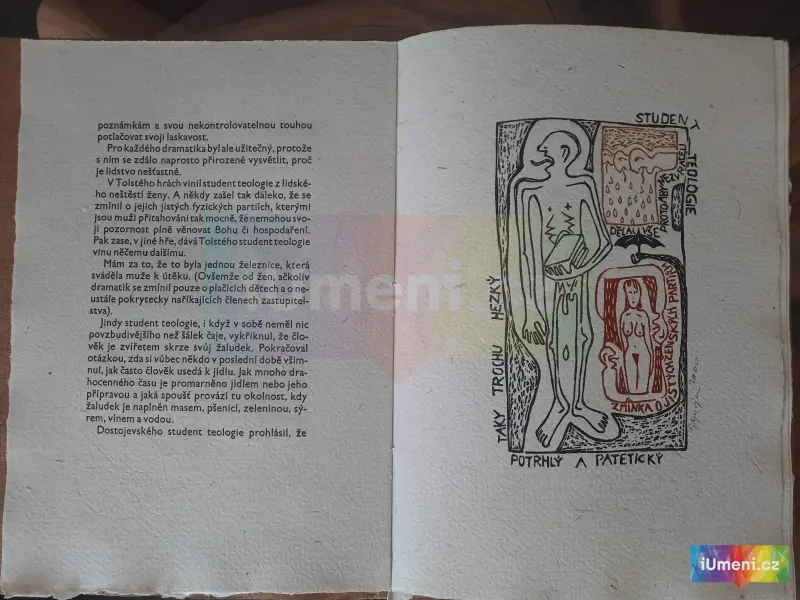 poznámkám a svou nekontrolovatelnou touhou
potlačovat svoji laskavost.
Pro každého dramatika byl ale užitečný, protože
s ním se zdálo naprosto přirozené vysvětlit, proč
je lidstvo nešťastné.
V Tolstého hrách vinil student teologie z lidské-
ho neštěstí ženy. A někdy zašel tak daleko, že se
zmínil o jejich jistých fyzických partiích, kterými
jsou muži přitahováni tak mocně, že nemohou svo-
ji pozornost plně věnovat Bohu či hospodaření.
Pak zase, v jiné hře, dává Tolstého student teologie
vinu něčemu dalšímu.
Mám za to, že to byla jednou železnice, která
sváděla muže k útěku. (Ovšemže od žen, ačkoliv
dramatik se zmínil pouze o plačících dětech a o ne-
ustále pokrytecky naříkajících členech zastupitel-
stva).
Jindy student teologie, i když v sobě neměl nic
povzbudivějšího než šálek čaje, vykřiknul, že člo-
věk je zvířetem skrze svůj žaludek. Pokračoval
otázkou, zda si vůbec někdo v poslední době všim-
nul, jak často člověk usedá k jídlu. Jak mnoho dra-
hocenného času je promarněno jídlem nebo jeho
přípravou a jaká spoušť provází tu okolnost, kdy
žaludek je naplněn masem, pšenicí, zeleninou, sý-
rem, vínem a vodou.
Dostojevského student teologie prohlásil, že
STUDENT
TEOLOGIE
DĚLALI VŠE
PROTO ABY
ZMÍNKA O JISTÝCH ŽENSKÝCH PARTIÍCH
TAKY TROCHU HEZKÝ
POTRHLÝ A PATETICKÝ
2000
iUmeni.cz
iUmeni.cz